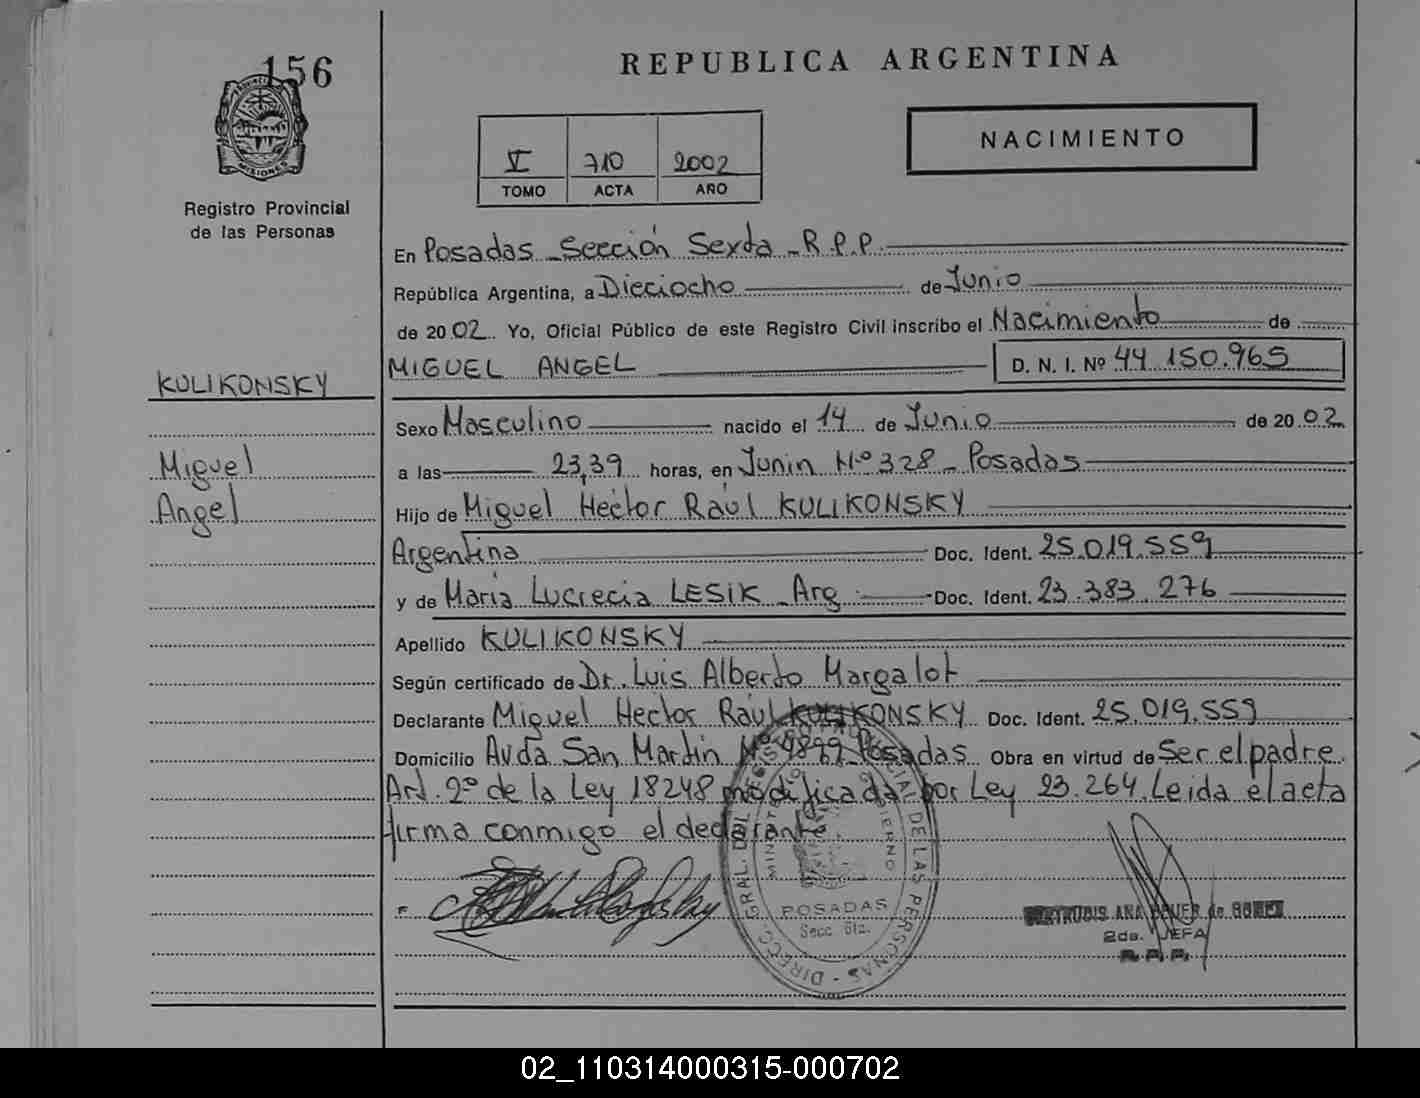 156
REPUBLICA ARGENTINA
NACIMIENTO
V 710 2002
TOMO ACTA AÑO
PROVINCIA
MISIONES
Registro Provincial
de las Personas
En Posadas - Sección Sexta - R.P.P.
República Argentina, a Dieciocho de Junio
de 2002. Yo, Oficial Público de este Registro Civil inscribo el Nacimiento de
MIGUEL ANGEL D. N. I. Nº 44.150.965
KULIKONSKY
Miguel
Angel
Sexo Masculino nacido el 14 de Junio de 2002
a las 23,39 horas, en Junin Nº 328 - Posadas
Hijo de Miguel Hector Raúl KULIKONSKY
Argentina Doc. Ident. 25.019.559
y de Maria Lucrecia LESIK - Arg. Doc. Ident. 23.383.276
Apellido KULIKONSKY
Según certificado de Dr. Luis Alberto Margalot
Declarante Miguel Hector Raúl KULIKONSKY Doc. Ident. 25.019.559
Domicilio Avda San Martin Nº 4899 Posadas Obra en virtud de Ser el padre.
Art. 2º de la Ley 18248 modificada por Ley 23.264. Leida el acta
firma conmigo el declarante.
DIREC. GRAL. DEL REGISTRO PROVINCIAL DE LAS PERSONAS
POSADAS
Secc. 6ta.
GERTRUDIS ANA BAUER de GOMEZ
2da. JEFA
R. P. P.
02_110314000315-000702